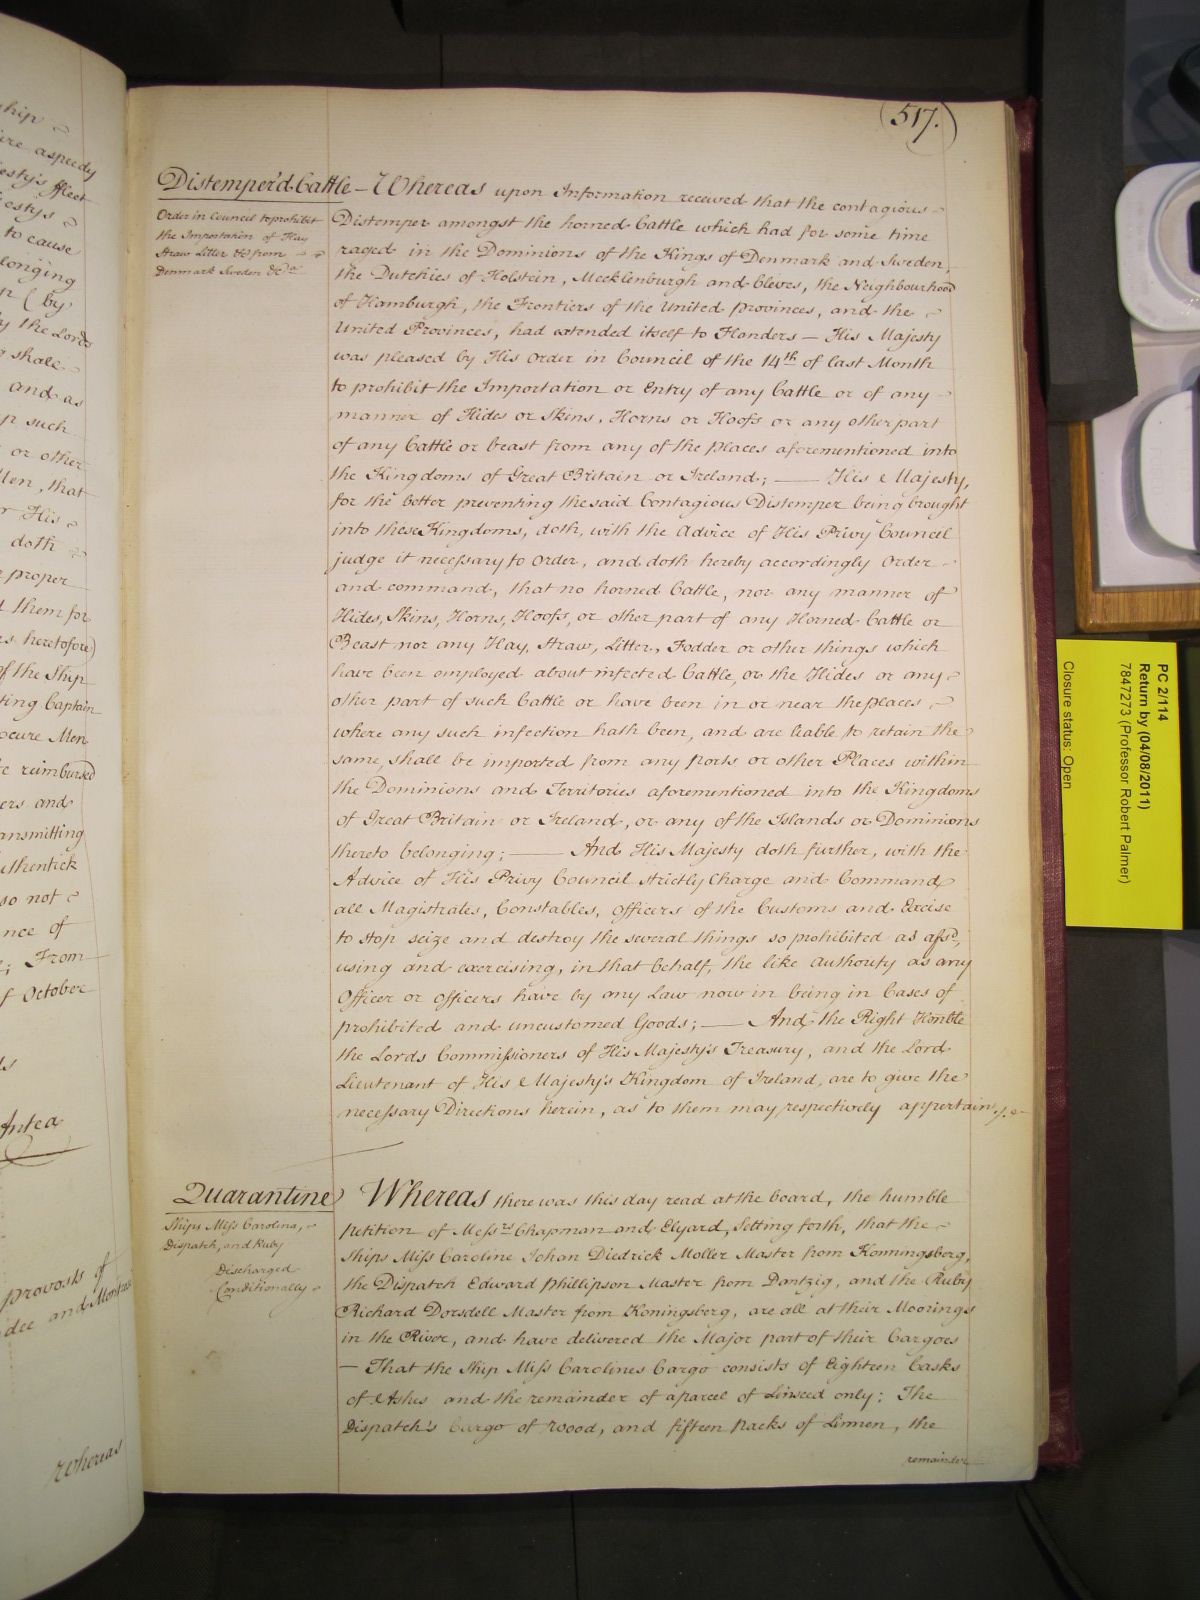 ship
ire aspeedy
esty's ffleet
esty's
to cause
longing
n (by
by the Lords
shall
and as
n such
or other
Men, that
r His
doth
e proper
d them for
rs heretofore)
of the Ship
ting Captain
ocure Men
be reimbursed
ers and
ansmitting
uthentick
so not
nce of
; From
f October
Antea
provosts of
dee and Montros
Whereas
(517.)
Distemper'd Cattle – Whereas upon Information received that the contagious
Order in Council to prohibit
the Importation of Hay
Straw Litter &c from
Denmark Sweden &ca
Distemper amongst the horned Cattle which had for some time
raged in the Dominions of the Kings of Denmark and Sweden,
the Dutchies of Holstein, Mecklenburgh and Cleves, the Neighbourhood
of Hamburgh, the Frontiers of the United provinces, and the
United Provinces, had extended itself to Flanders — His Majesty
was pleased by His Order in Council of the 14th of last Month
to prohibit the Importation or Entry of any Cattle or of any
manner of Hides or Skins, Horns or Hoofs or any other part
of any Cattle or beast from any of the places aforementioned into
the Kingdoms of Great Britain or Ireland; — His Majesty,
for the better preventing the said Contagious Distemper being brought
into these Kingdoms, doth, with the Advice of His Privy Council
judge it necessary to Order, and doth hereby accordingly Order
and command, that no horned Cattle, nor any manner of
Hides, Skins, Horns, Hoofs, or other part of any Horned Cattle or
Beast nor any Hay, Straw, Litter, Fodder or other things which
have been employed about infected Cattle, or the Hides or any
other part of such Cattle or have been in or near the places
where any such infection hath been, and are liable to retain the
same, shall be imported from any ports or other Places within
the Dominions and Territories aforementioned into the Kingdoms
of Great Britain or Ireland, or any of the Islands or Dominions
thereto belonging; — And His Majesty doth further, with the
Advice of His Privy Council strictly Charge and Command
all Magistrates, Constables, Officers of the Customs and Excise
to stop seize and destroy the several things so prohibited as afsd,
using and exercising, in that behalf, the like Authority as any
Officer or Officers have by any Law now in being in Cases of
prohibited and uncustomed Goods; — And the Right Honble
the Lords Commissioners of His Majesty's Treasury, and the Lord
Lieutenant of His Majesty's Kingdom of Ireland, are to give the
necessary Directions herein, as to them may respectively appertain.
Quarantine Whereas there was this day read at the board, the humble
Ships Miss Carolina,
Dispatch, and Ruby
Discharged
Conditionally
petition of Messrs Chapman and Elyard, Setting forth, that the
Ships Miss Caroline Johan Diedrick Moller Master from Konningsberg,
the Dispatch Edward Phillipson Master from Dantzig, and the Ruby
Richard Dorsdell Master from Koningsberg, are all at their Moorings
in the River, and have delivered the Major part of their Cargoes
— That the Ship Miss Carolines Cargo consists of Eighteen Casks
of Ashes and the remainder of a parcel of Linseed only; The
Dispatch's Cargo of Wood, and fifteen packs of Linnen, the
remainder
PC 2/114
Return by (04/08/2011)
7847273 (Professor Robert Palmer)
Closure status: Open